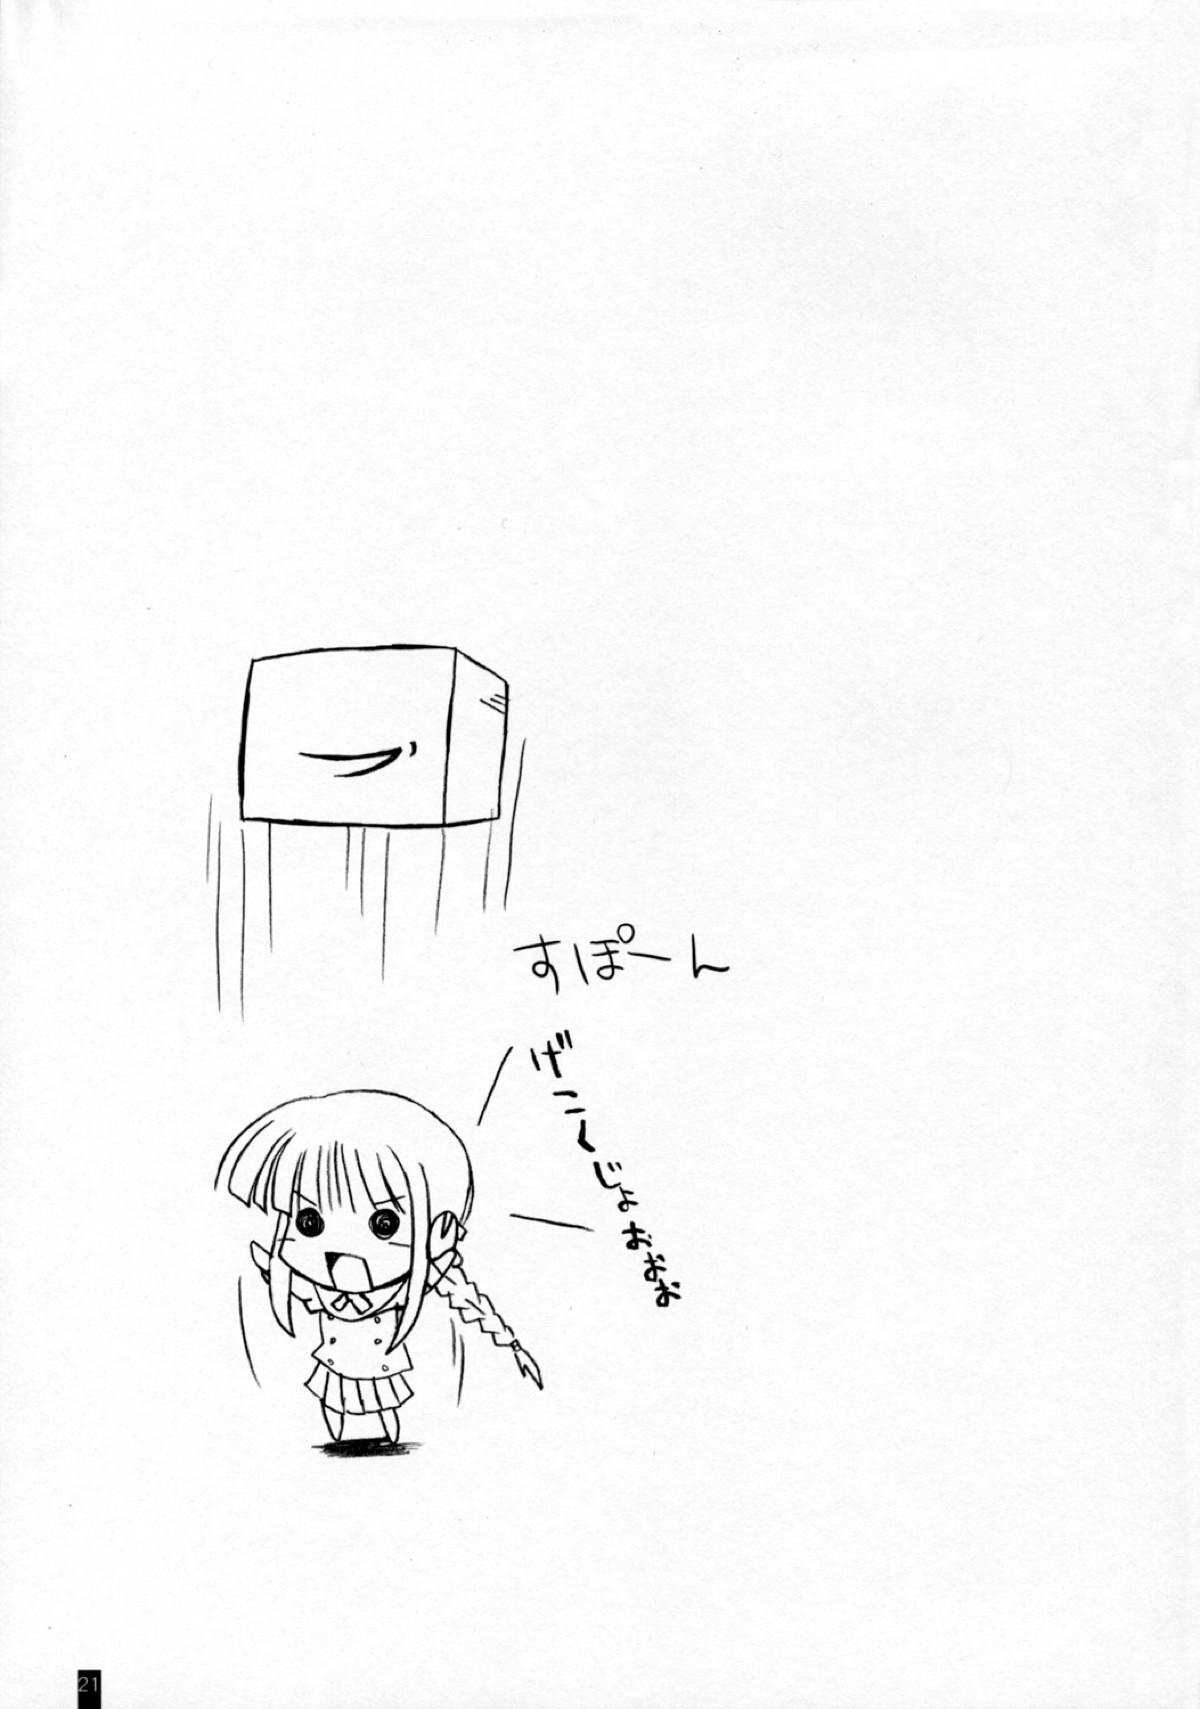 すぽーん
げこくじょおおお
21